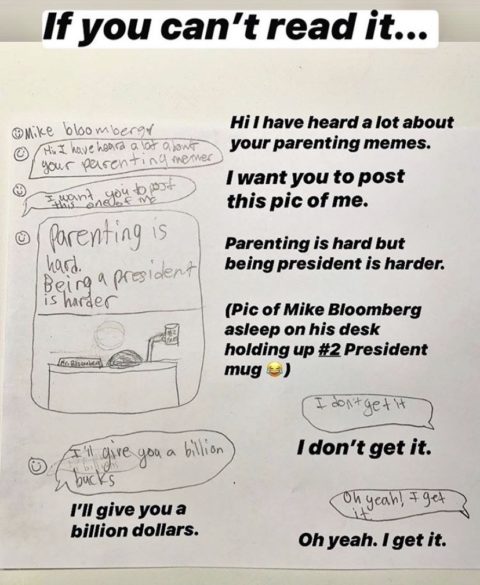 If you can't read it...
Mike bloomberg
Hi I have heard a lot about
your parenting memes
I want you to post
this one of me
Parenting is
hard.
Being a president
is harder
I'll give you a billion
bucks
Hi I have heard a lot about
your parenting memes.
I want you to post
this pic of me.
Parenting is hard but
being president is harder.
(Pic of Mike Bloomberg
asleep on his desk
holding up #2 President
mug 😂)
I don't get it
I don't get it.
I'll give you a
billion dollars.
Oh yeah! I get
it
Oh yeah. I get it.